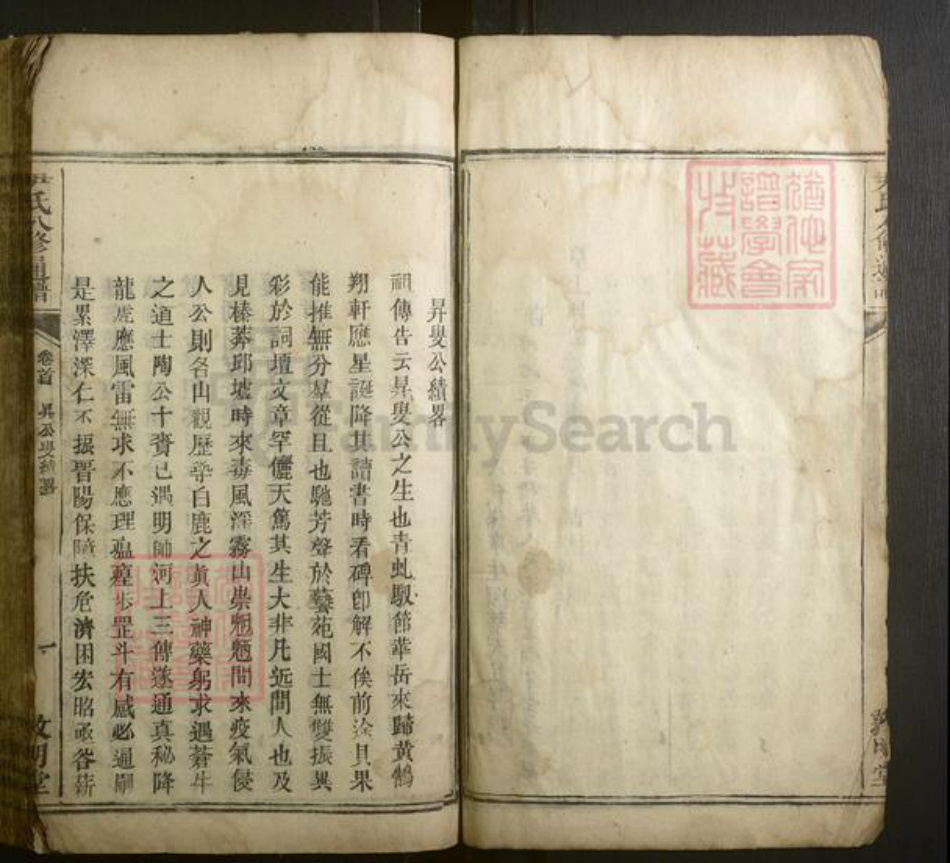 猶他家
譜學會
收藏
昇叟公績畧
祖傳告云昇叟公之生也青虬馭節華岳來歸黃鶴
翔軒應星誕降其讀書時看碑卽解不俟前淦貝果
能推無分羣從且也馳芳聲於藝苑國士無雙振異
彩於詞壇文章罕儷天篤其生大非凡近間人也及
見榛莽邱墟時來毒風深霧山祟魍魎間來疫氣侵
人公則名山觀歷學白鹿之眞人神藥躬求遇蒼牛
之道士陶公十賚已遇明師河上三傳遂通真秘降
龍虎應風雷無求不應理瘟瘴步罡斗有感必通嗣
是累澤深仁不振晋陽保障扶危濟困宏昭亟咎薪
尹氏八修通譜
卷首
昇公叟績畧
一
敦明堂
FamilySearch